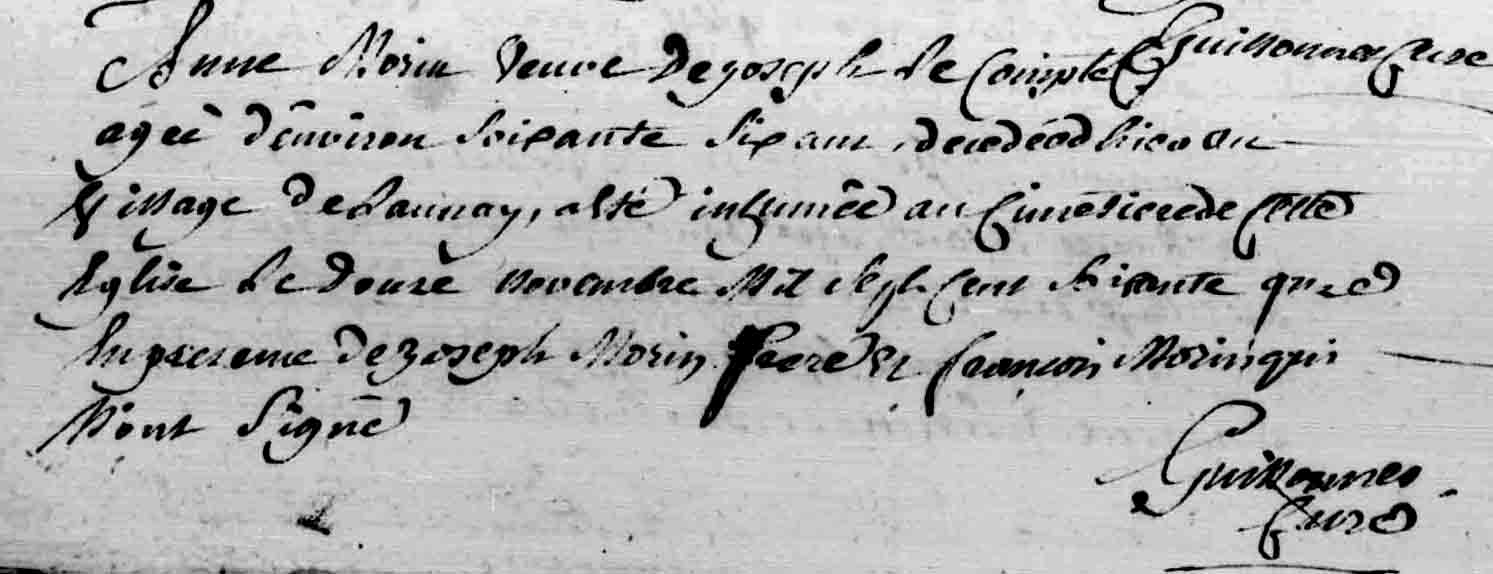 Guillonneo Curé
Anne Morin veuve de Joseph le Compte
agée d'environ soixante six ans, decedée d'hier au
village de Launay, a été inhumée au Cimetiere de cette
Eglise le douze novembre mil sept cent soixante
En presence de Joseph Morin frere et françois Morin qui
n'ont signé
Guillonneo
Curé